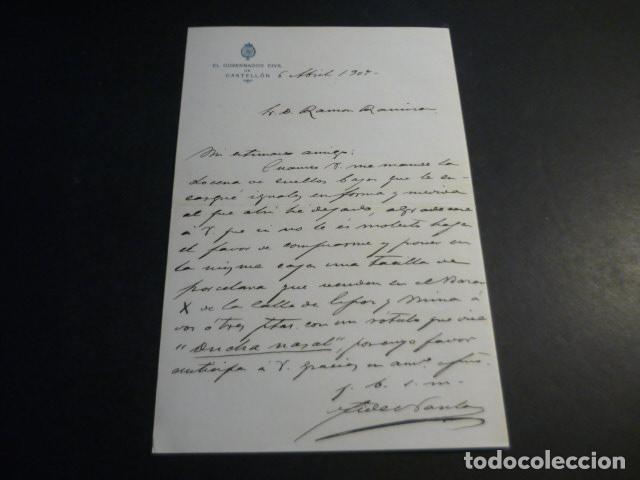 EL GOBERNADOR CIVIL
DE
CASTELLÓN
6 Abril 190
Sr. D. Ramon Ramirez
Mi estimado amigo:
Cuando V. me mande la
docena de cuellos bajos que le en-
cargué iguales en forma y medida
al que ahí he dejado, agradeceré
á V. que si no le es molesto haga
el favor de comprarme y poner en
la misma caja una tacilla de
porcelana que venden en el Bazar
X de la calle de Espoz y Mina á
dos ó tres ptas. con un rótulo que dice
"Ducha nasal" por cuyo favor
anticipa á V. gracias su am.º afmo.
q. b. s. m.
todocoleccion
todocoleccion.net